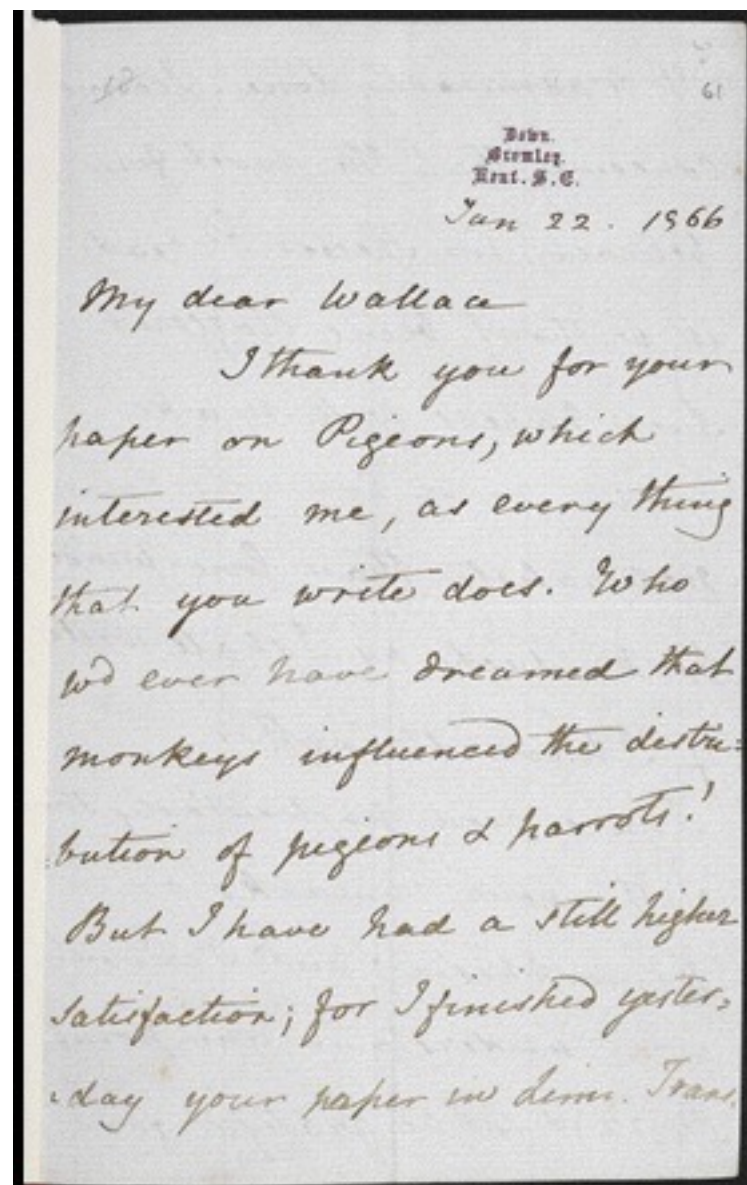 61
Down.
Bromley.
Kent. S.E.
Jan 22. 1866
My dear Wallace
I thank you for your
paper on Pigeons, which
interested me, as every thing
that you write does. Who
wd ever have dreamed that
monkeys influenced the distri=
=bution of pigeons & parrots!
But I have had a still higher
satisfaction; for I finished yester=
=day your paper in Linn. Trans.